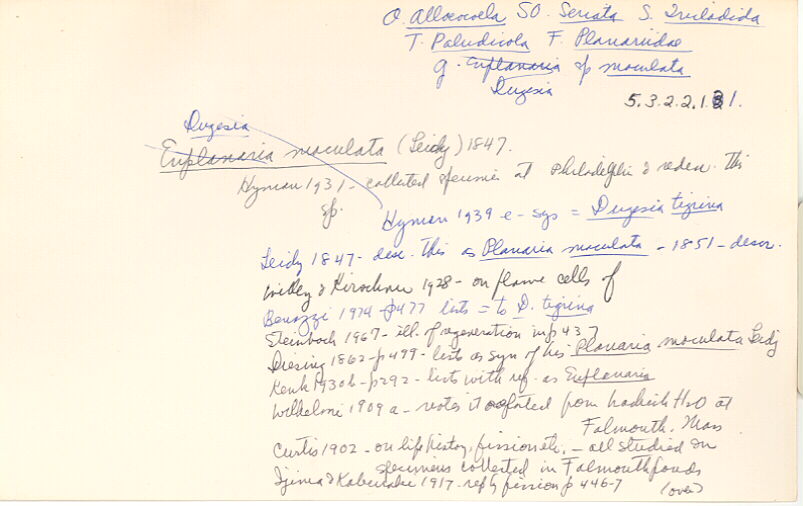 O. Alloeocoela SO. Seriata S. Tricladida
T. Paludicola F. Planariidae
g. Euplanaria sp maculata
Dugesia
5.3.2.2.1.31.
Dugesia
Euplanaria maculata (Leidy) 1847.
Hyman 1931 - collected specimens at Philadelphia & redescr. this
sp.
Hyman 1939 e - sys = Dugesia tigrina
Leidy 1847 - desc. this as Planaria maculata - 1851 - descr.
Willey & Kirschner 1928 - on flame cells of
Benazzi 1974 - p477 lists = to D. tigrina
Steinbach 1967 - ill. of regeneration in p 437
Diesing 1862 - p499 - lists as syn of his Planaria maculata Leidy
Kenk 1930b - p292 - lists with ref. as Euplanaria
Wilhelmi 1909 a - notes it from brackish H2O at
Falmouth, Mass
Curtis 1902 - on life history, fission etc. - all studied on
specimens collected in Falmouth ponds
Ijima & Kaburaki 1917 - rep by fission p 446-7
(over)